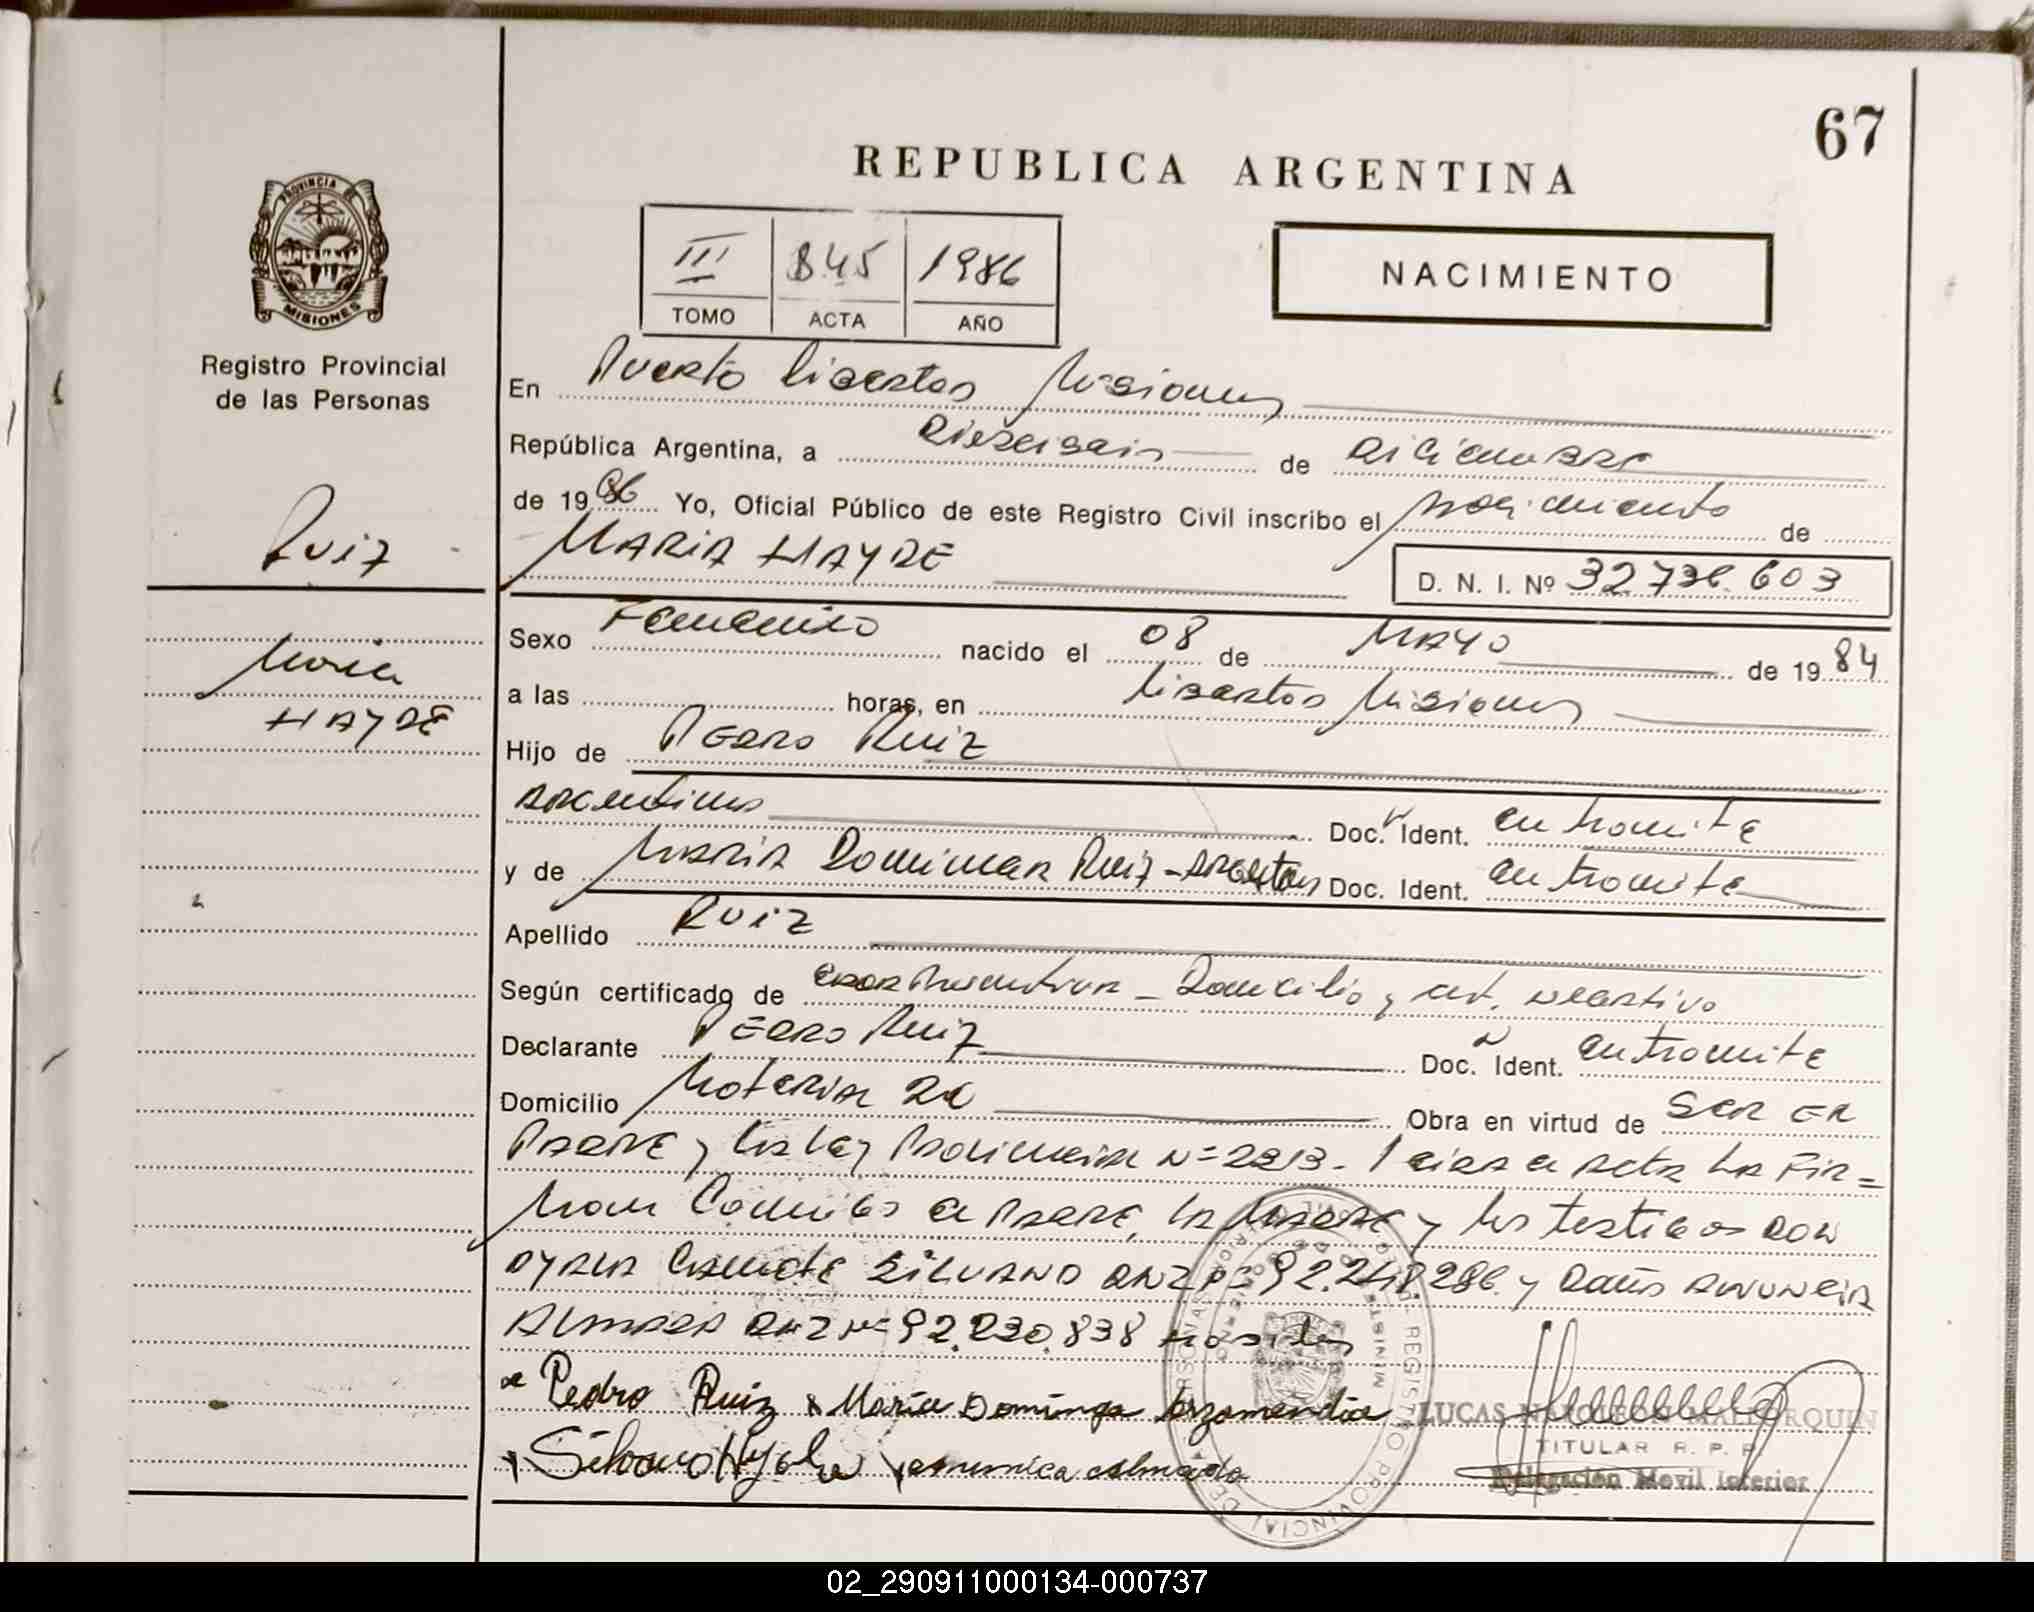 67
REPUBLICA ARGENTINA
PROVINCIA DE
MISIONES
III 845 1986
TOMO ACTA AÑO
NACIMIENTO
Registro Provincial
de las Personas
Ruiz
Maria
HAYDE
En Puerto Libertad Misiones
República Argentina, a dieziseis de diciembre
de 1986 Yo, Oficial Público de este Registro Civil inscribo el nacimiento de
MARIA HAYDE D. N. I. Nº 32.736.603
Sexo Femenino nacido el 08 de MAYO de 1984
a las horas, en Libertad Misiones
Hijo de Pedro Ruiz
Argentino Doc. Ident. en tramite
y de MARIA Dominga Ruiz - Doc. Ident. en tramite
Apellido Ruiz
Según certificado de - Domicilio y cert. negativo
Declarante Pedro Ruiz Doc. Ident. en tramite
Domicilio Obra en virtud de ser el
Padre y la Ley Provincial Nº Leida el Acta la Fir=
man Conmigo el Padre, la Madre y los testigos don
SILVANO DNI Nº 92.248.286 y Doña
DNI Nº 92.230.838
Pedro Ruiz x Maria Dominga Arzamendia
LUCAS NAPOLEON MALLORQUIN
TITULAR R. P. P.
Delegación Movil Interior
02_290911000134-000737